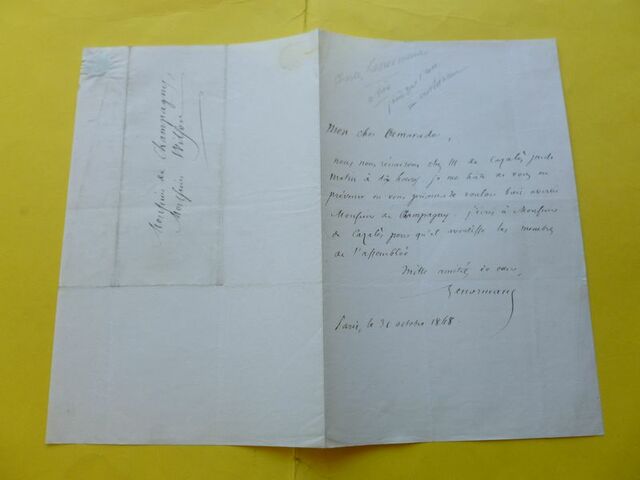 Monsieur de Champagny
Monsieur Wilson
Charles Lenormant
Mon cher Camarade,
nous nous réunirons chez M de Cazalès jeudi
matin à dix heures je me hâte de vous en
prévenir en vous priant de vouloir bien avertir
Monsieur de Champagny. j'écris à Monsieur
de Cazalès pour qu'il avertisse les membres
de l'assemblée
Mille amitiés de cœur,
Lenormant
Paris, le 31 octobre 1848.